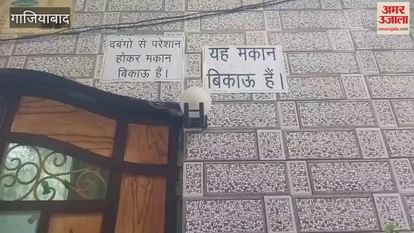 गाजियाबाद
अमर
उजाला
amarujala.com
दबंगो से परेशान
होकर मकान
बिकाऊ हैं।
यह मकान
बिकाऊ हैं।